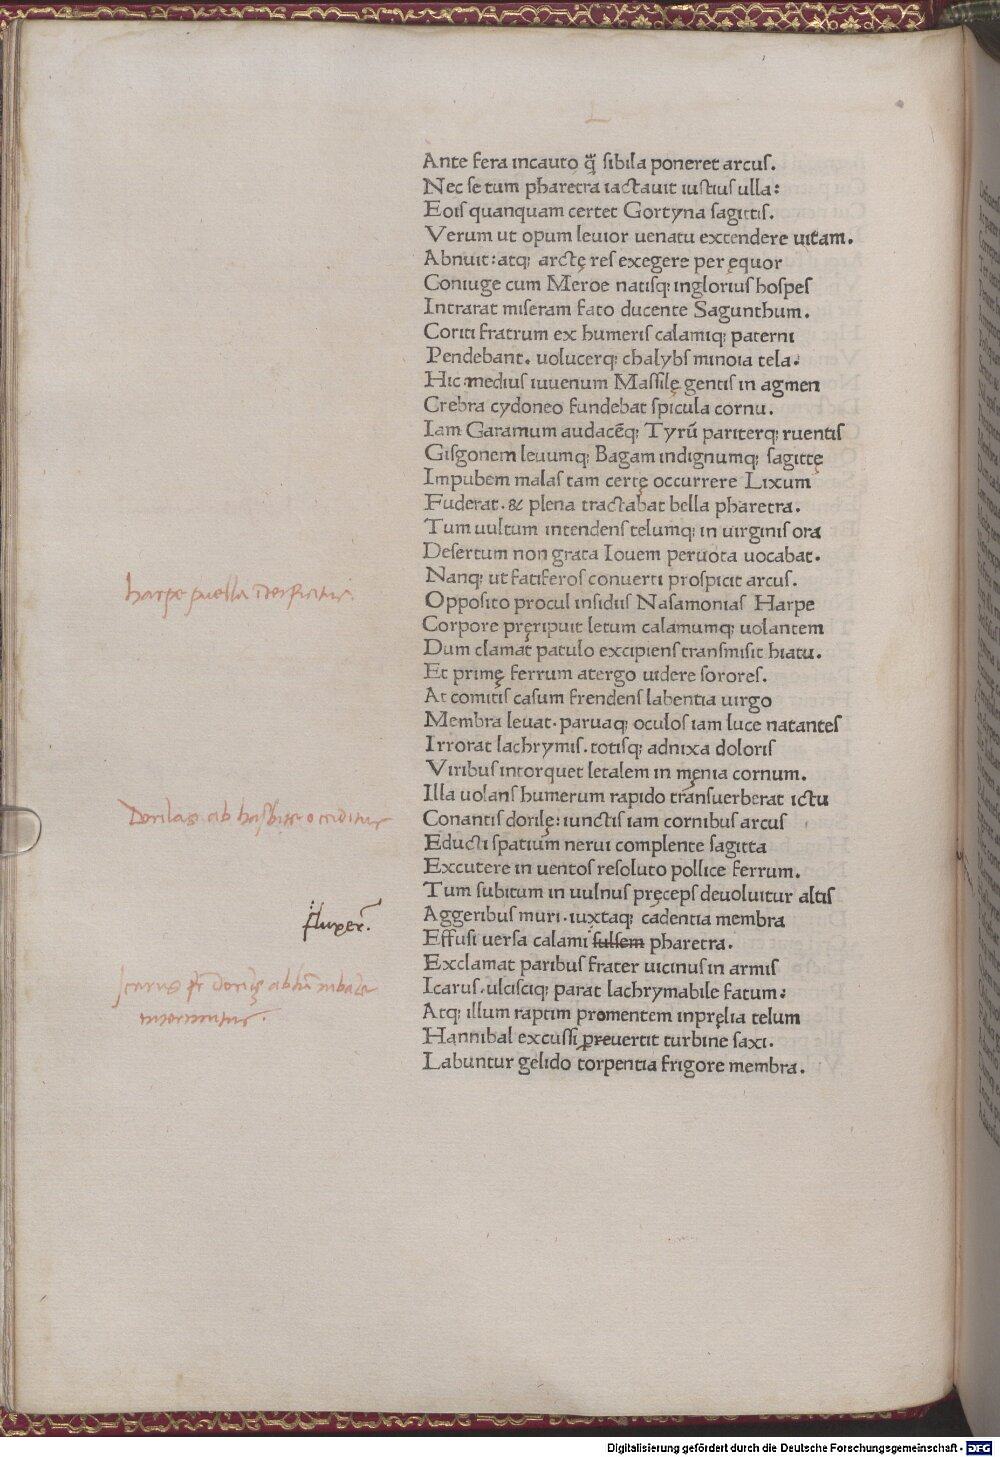 Ante fera incauto q̃ sibila poneret arcus.
Nec se tum pharetra iactauit iustius ulla:
Eois quanquam certet Gortyna sagittis.
Verum ut opum leuior uenatu extendere uitam.
Abnuit: atq; arctę res exegere per ęquor
Coniuge cum Meroe natisq; inglorius hospes
Intrarat miseram fato ducente Sagunthum.
Coriti fratrum ex humeris calamiq; paterni
Pendebant. uolucerq; chalybs minoia tela:
Hic medius iuuenum Massilę gentis in agmen
Crebra cydoneo fundebat spicula cornu.
Iam Garamum audacēq; Tyrū pariterq; ruentis
Gisgonem leuumq; Bagam indignumq; sagittę
Impubem malas tam certę occurrere Lixum
Fuderat. & plena tractabat bella pharetra.
Tum uultum intendens telumq; in uirginis ora
Desertum non grata Iouem peruota uocabat.
Nanq; ut fatiferos conuerti prospicit arcus.
harpe puella
Opposito procul insidiis Nasamonias Harpe
Corpore pręripuit letum calamumq; uolantem
Dum clamat patulo excipiens transmisit hiatu.
Et primę ferrum atergo uidere sorores.
At comitis casum frendens labentia uirgo
Membra leuat. paruaq; oculos iam luce natantes
Irrorat lachrymis. totisq; adnixa doloris
Viribus intorquet letalem in męnia cornum.
Illa uolans humerum rapido transuerberat ictu
Dorilas ab hasbite occiditur
Conantis dorilę: iunctis iam cornibus arcus
Educti spatium nerui complente sagitta
Excutere in uentos resoluto pollice ferrum.
Tum subitum in uulnus pręceps deuoluitur altis
Aggeribus muri. iuxtaq; cadentia membra
Effusi uersa calami fulsem pharetra.
Exclamat paribus frater uicinus in armis
Icarus fr̄ dorilę ab
Icarus. ulcisciq; parat lachrymabile fatum:
Atq; illum raptim promentem inpręlia telum
Hannibal excussi preuertit turbine saxi.
Labuntur gelido torpentia frigore membra.
Digitalisierung gefördert durch die Deutsche Forschungsgemeinschaft - DFG